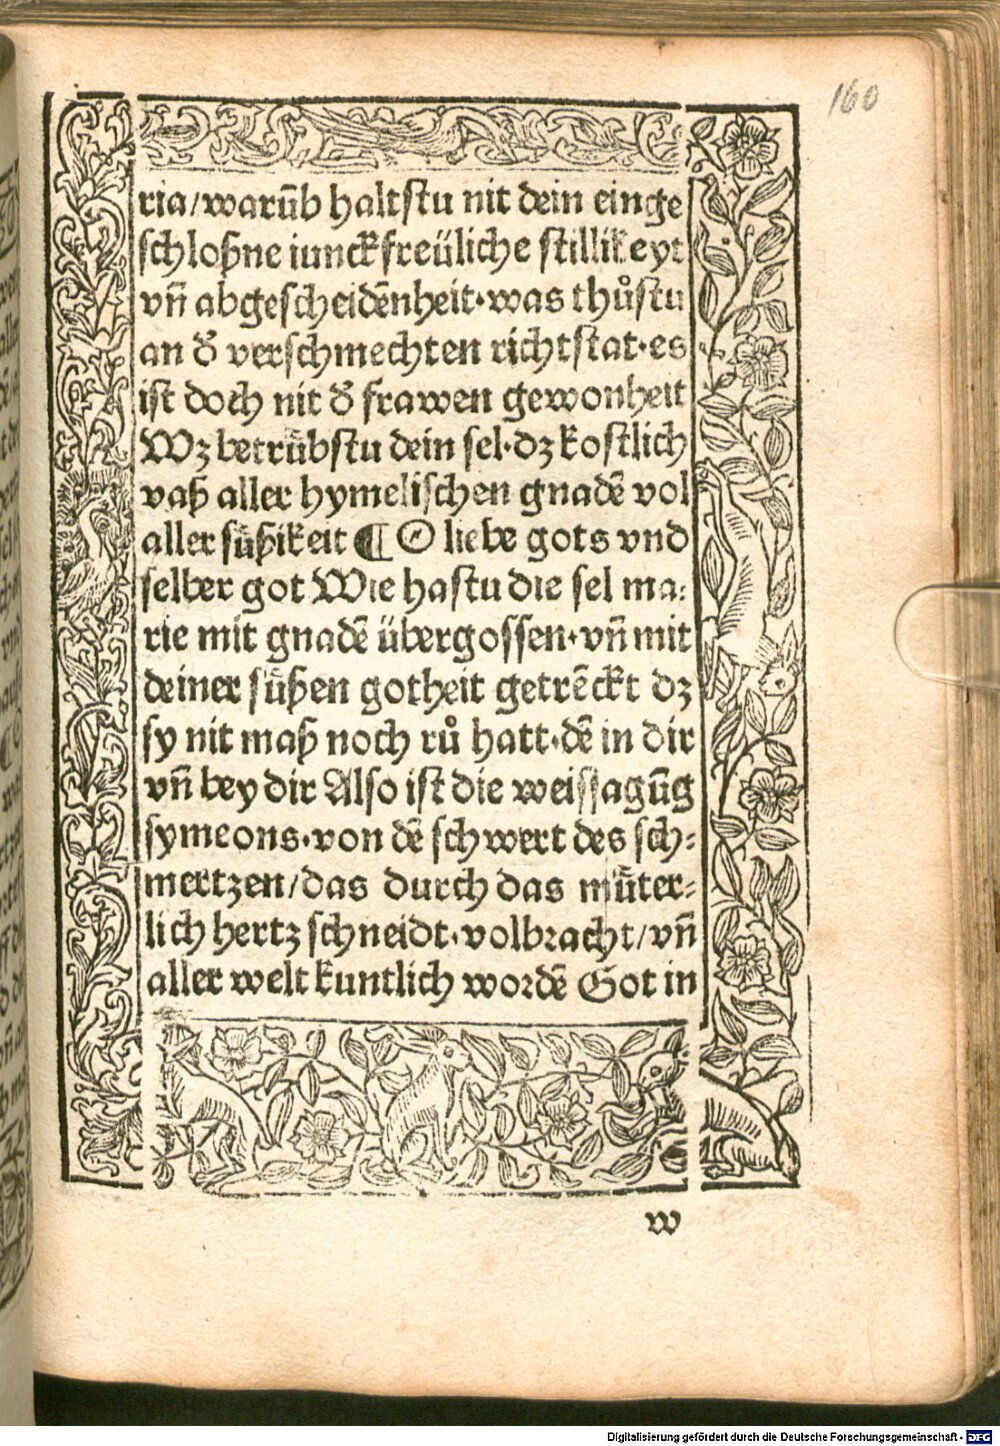 160
ria/warūb haltstu nit dein einge
schloßne iunckfreüliche stillikeyt
vn̄ abgescheidēnheit·was thůstu
an d̕ verschmechten richtstat·es
ist doch nit d̕ frawen gewonheit
Wz betrübstu dein sel·dz kostlich
vaß aller hymelischen gnadē vol
aller süßikeit ¶ O liebe gots vnd
selber got Wie hastu die sel ma:
rie mit gnadē übergossen·vn̄ mit
deiner süßen gotheit getrēckt dz
sy nit maß noch rů hatt·dē in dir
vn̄ bey dir Also ist die weissagūg
symeons·von dē schwert des sch⸗
mertzen/das durch das müter⸗
lich hertz schneidt·volbracht/vn̄
aller welt kuntlich wordē Got in
w
Digitalisierung gefördert durch die Deutsche Forschungsgemeinschaft - DFG